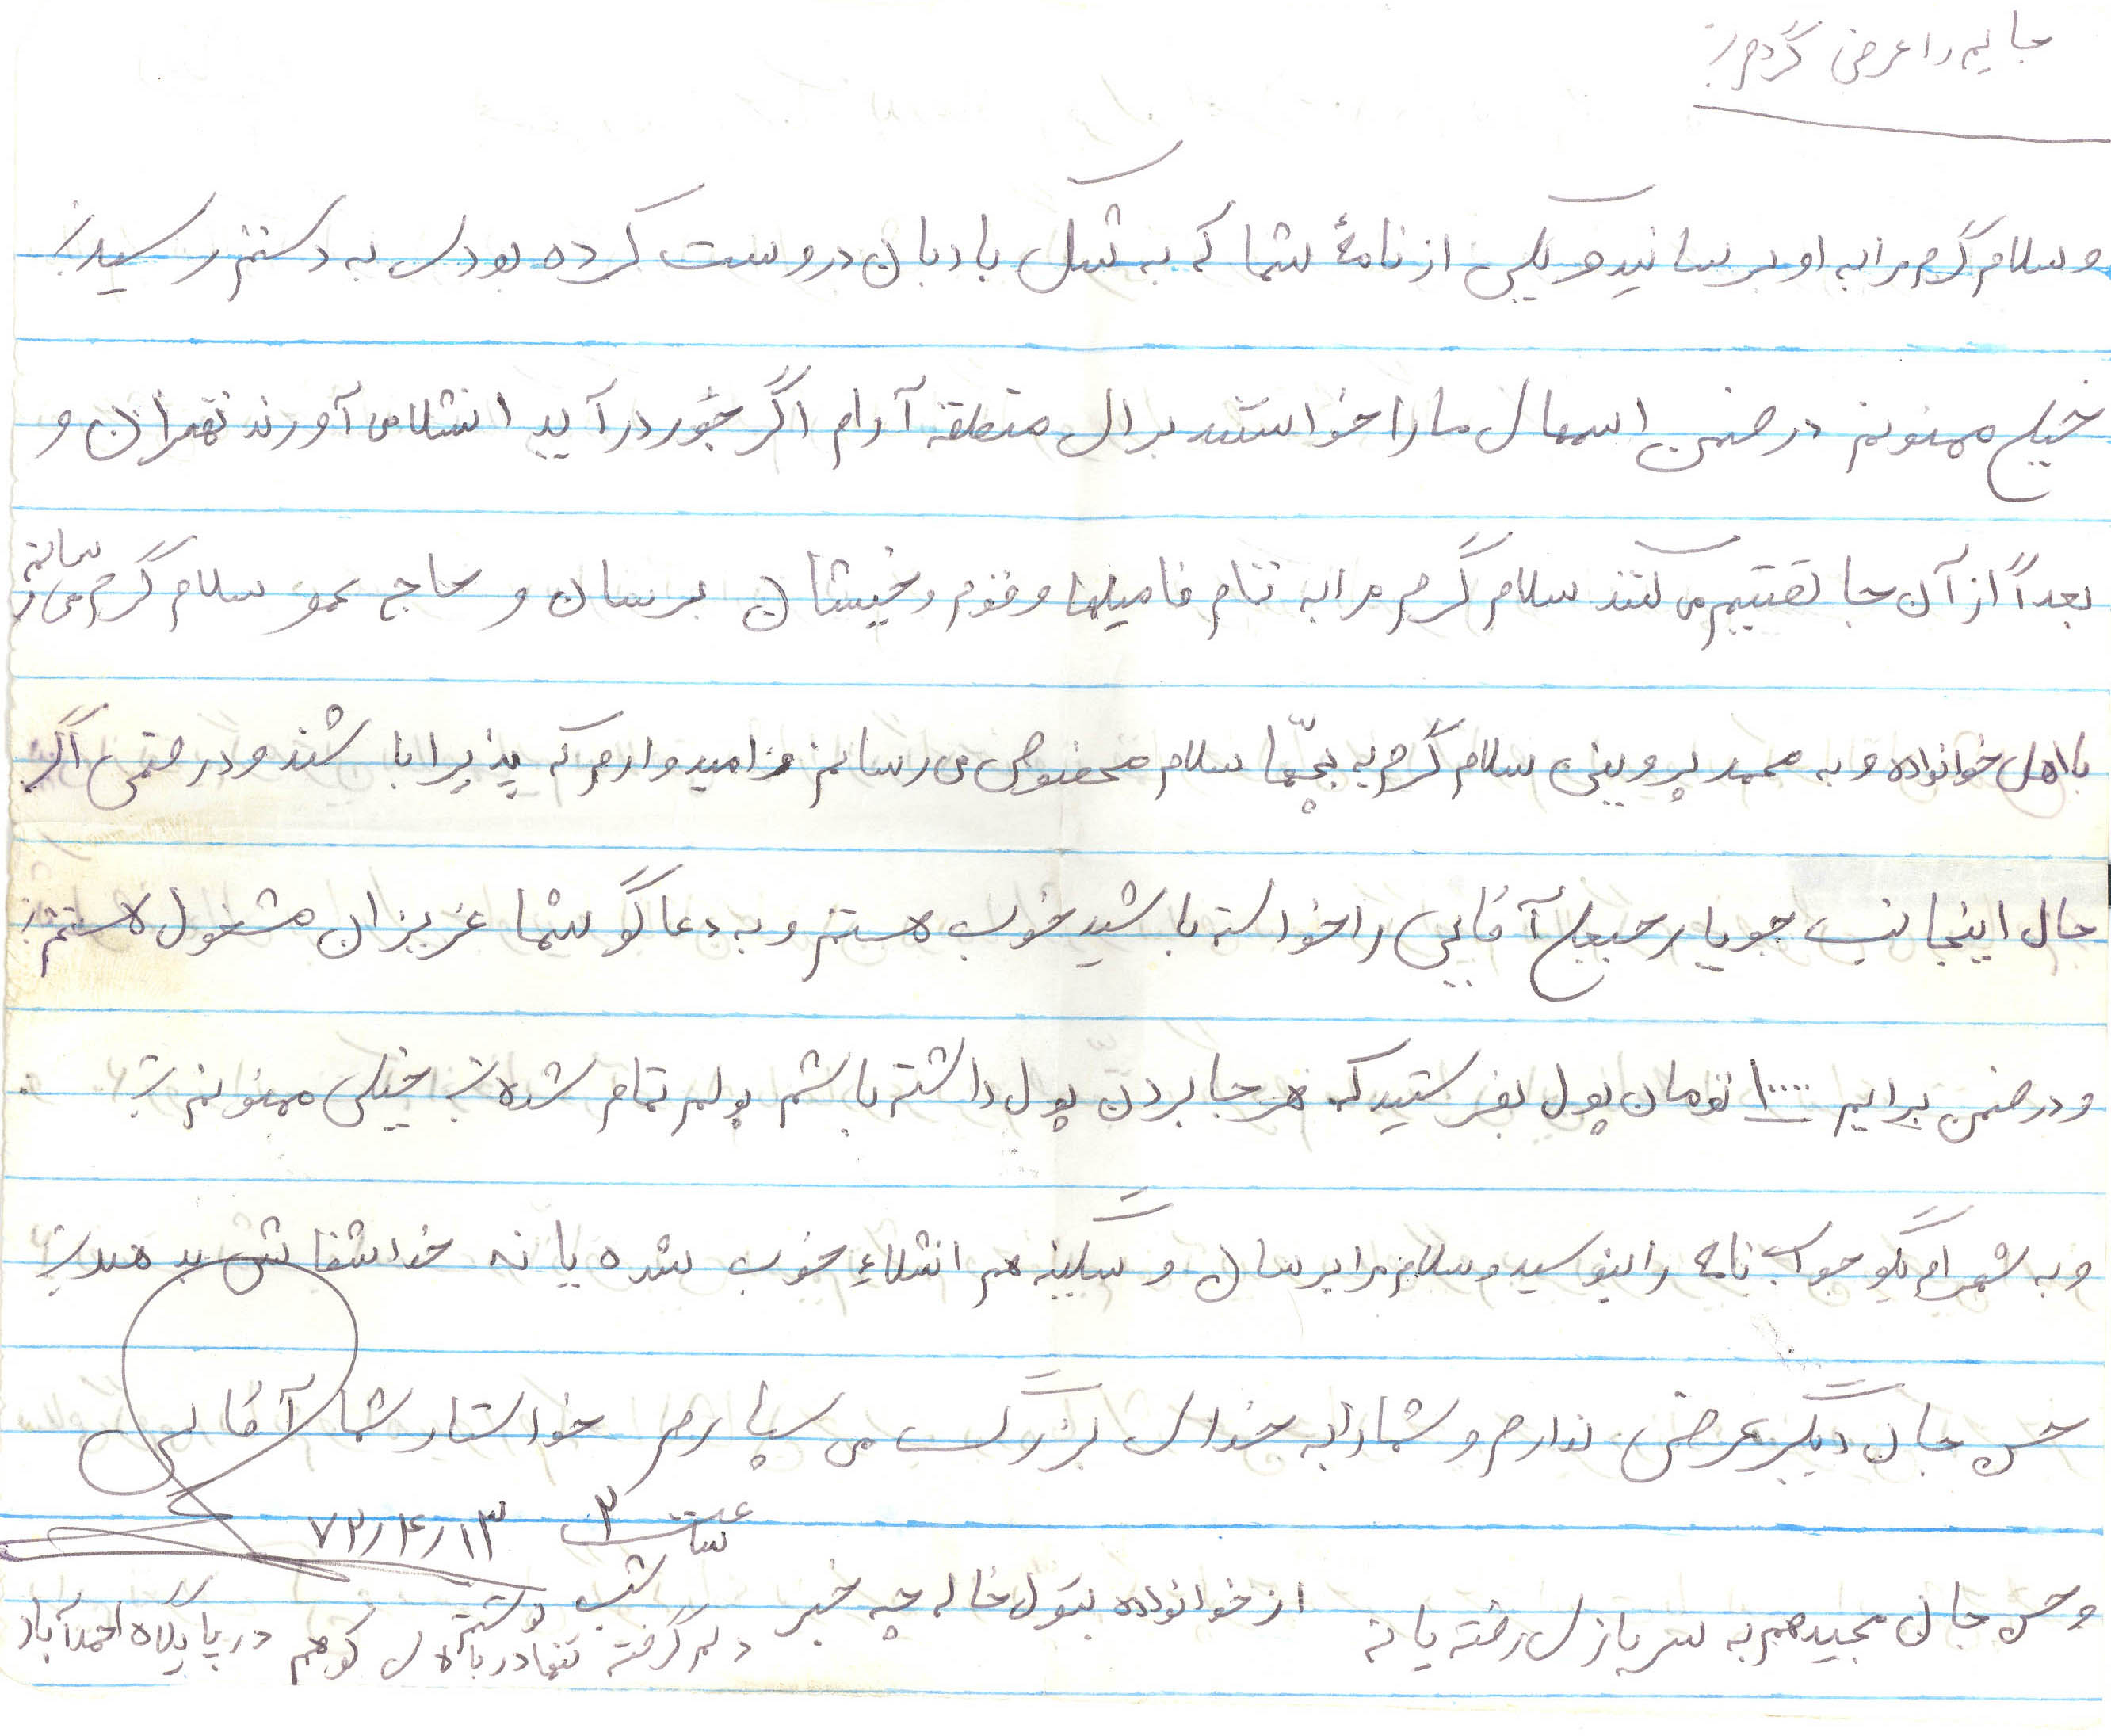 جایم را عرض کردم
و سلام گرم مرا به او برسانید و یکی از نامهٔ شما که به شکل بادبان دروست کرده بودی به دستم رسید
خیلی ممنونم در ضمن اسمهای ما را خواستند برای منطقه آرام اگر جور در آید انشلا می آورند تهران و
بعداً از آن جا تقسیم می کنند سلام گرم مرا به تمام فامیلها و قوم و خیشان برسان و حاج عمو سلام گرم می رسانم
با اهل خوانواده و به محمد پروینی سلام گرم به بچّها سلام مخصوص می رسانم و امیدوارم که پذیرا باشند و در ضمن اگر
حال اینجانب جویا رجبعلی آقایی را خواسته باشید خوب هستم و به دعا گو شما عزیزان مشغول هستم
و در ضمن برایم ۱۰۰۰۰ تومان پول بفرستید که هر جا بردن پول داشته باشم پولم تمام شده خیلی ممنونم
و به شهرام بگو جواب نامه را بنوسید و سلام مرا برسان و سکینه هم انشلاء خوب شده یا نه خدا شفایش بدهد
حسن جان دیگر عرضی ندارم و شما را به خدای بزرگ می سپارم خواستار شما آقایی
ساعت ۲ شب ۷۲/۴/۱۳
و حسن جان مجید هم به سربازی رفته یا نه از خوانواده بتول خاله چه خبر
دلم گرفته تنها در بالای کوهم در پایگاه احمدآباد